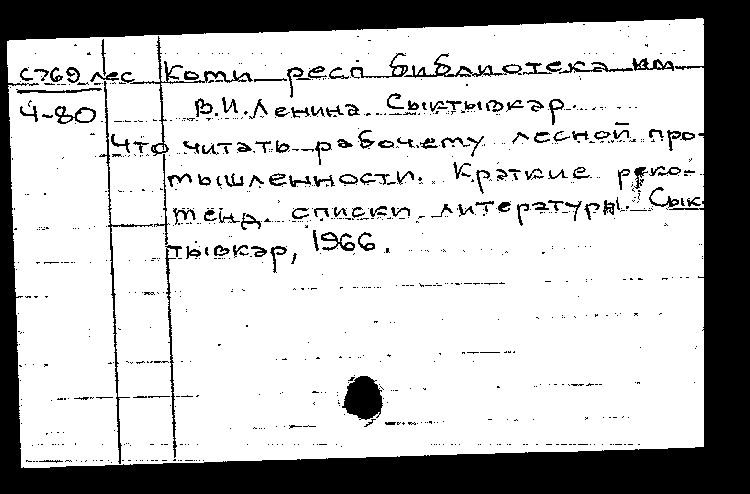 С769лес Коми респ библиотека им
Ч-80 В.И.Ленина. Сыктывкар.
Что читать рабочему лесной про-
мышленности. Краткие реко-
менд. списки литературы. Сык-
тывкар, 1966.